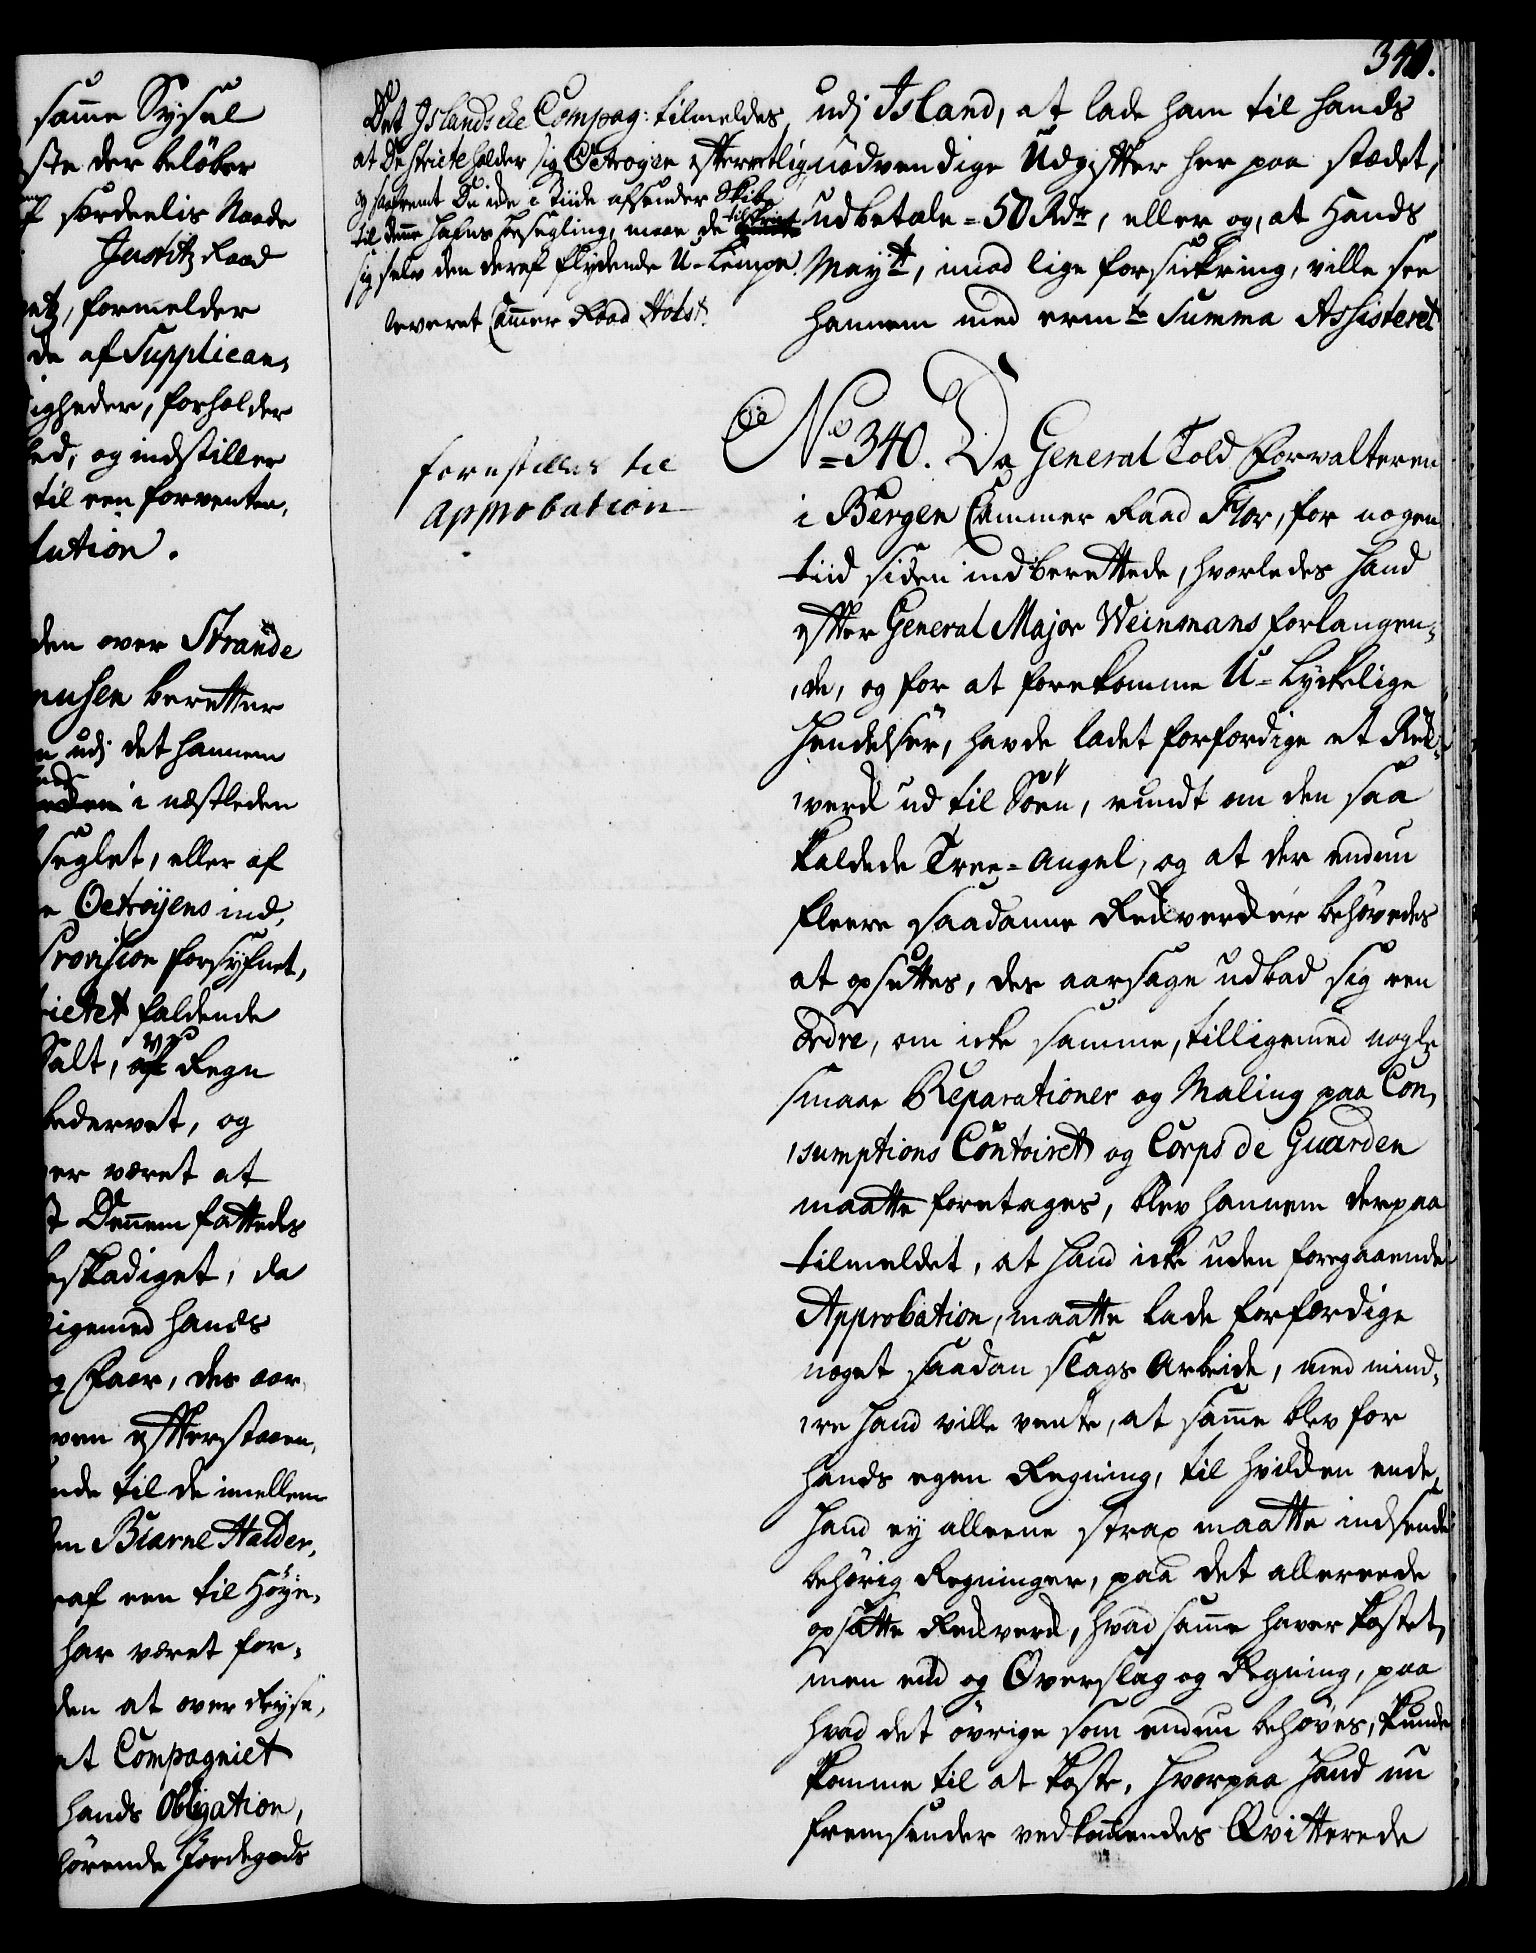 samme Sysel
ste der beløber
af særdeelis Naade
Justitz Raad
etz, formelder
de af Supplican,
igheder, forholder
ed, og indstiller
til een forventen,
lution.
den over Strande
nusen beretter
udj det hannem
i næstleden
seglet, eller af
e Octroijens ind,
Provision forsyfnet,
ictet faldende
Salt, ved Regn
bedervet, og
er været at
Dennem fattedes
eskadiget, da
igemed hands
Faar, des aar,
ven efterstaaen,
nde til de imellem
en Biarne Halder,
af een til Høye,
har været for,
den at over Reyse,
et Compagniet
hands Obligation,
hørende Jordegods
Det Islandske Compag: tilmeldes
at De stricte holder sig Octroyen efterretlig,
og saafremt De icke i Tiide afsender Skibe
til denne Hafns besegling, maae de tilskrive
sig selv den deraf flydende U-Lempe.
leveret Cammer Raad Holst.
forestilles til
Approbation
340.
udj Island, at lade ham til hands
nødvendige Udgifter her paa stædet,
udbetale = 50 Rdr, eller og, at Hands
Mayt, imod lige forsickring, ville see
hannem med ermte Summa Assisteret
No 340. Da General Told Forvalteren
i Bergen Cammer Raad Flor, for nogen
tiid siden indberettede, hvorledes Hand
efter General Major Weinmans forlangen,
de, og for at forekomme U-Lyckelige
Hendelser, havde ladet forfærdige et Reck,
verck ud til Søen, rundt om den saa
kaldede Tree-Angel, og at der endnu
fleere saadanne Reckvercker behøvedes
at opsettes, des aarsage udbad sig een
Ordre, om icke samme, tilligemed nogle
smaae Reparationer og Maling paa Con,
sumptions Contoiret og Corps de Guarden
maatte foretages, blev hannem derpaa
tilmeldet, at Hand icke uden foregaaende
Approbation, maatte lade forfærdige
noget saadan slags Arbeide, med mind,
re Hand ville vente, at samme blev for
hands egen Regning, til hvilcken ende,
Hand ey alleene strax maatte indsende
behørig Regninger, paa det allereede
opsatte Reckverck, hvad samme haver kostet,
men end og Overslag og Regning, paa
hvad det øvrige som endnu behøves, kunde
komme til at koste, Hvorpaa Hand nu
fremsender vedkommendes Qvitterede